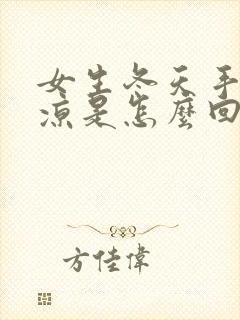 女生冬天手
凉是怎麼回
方佳偉